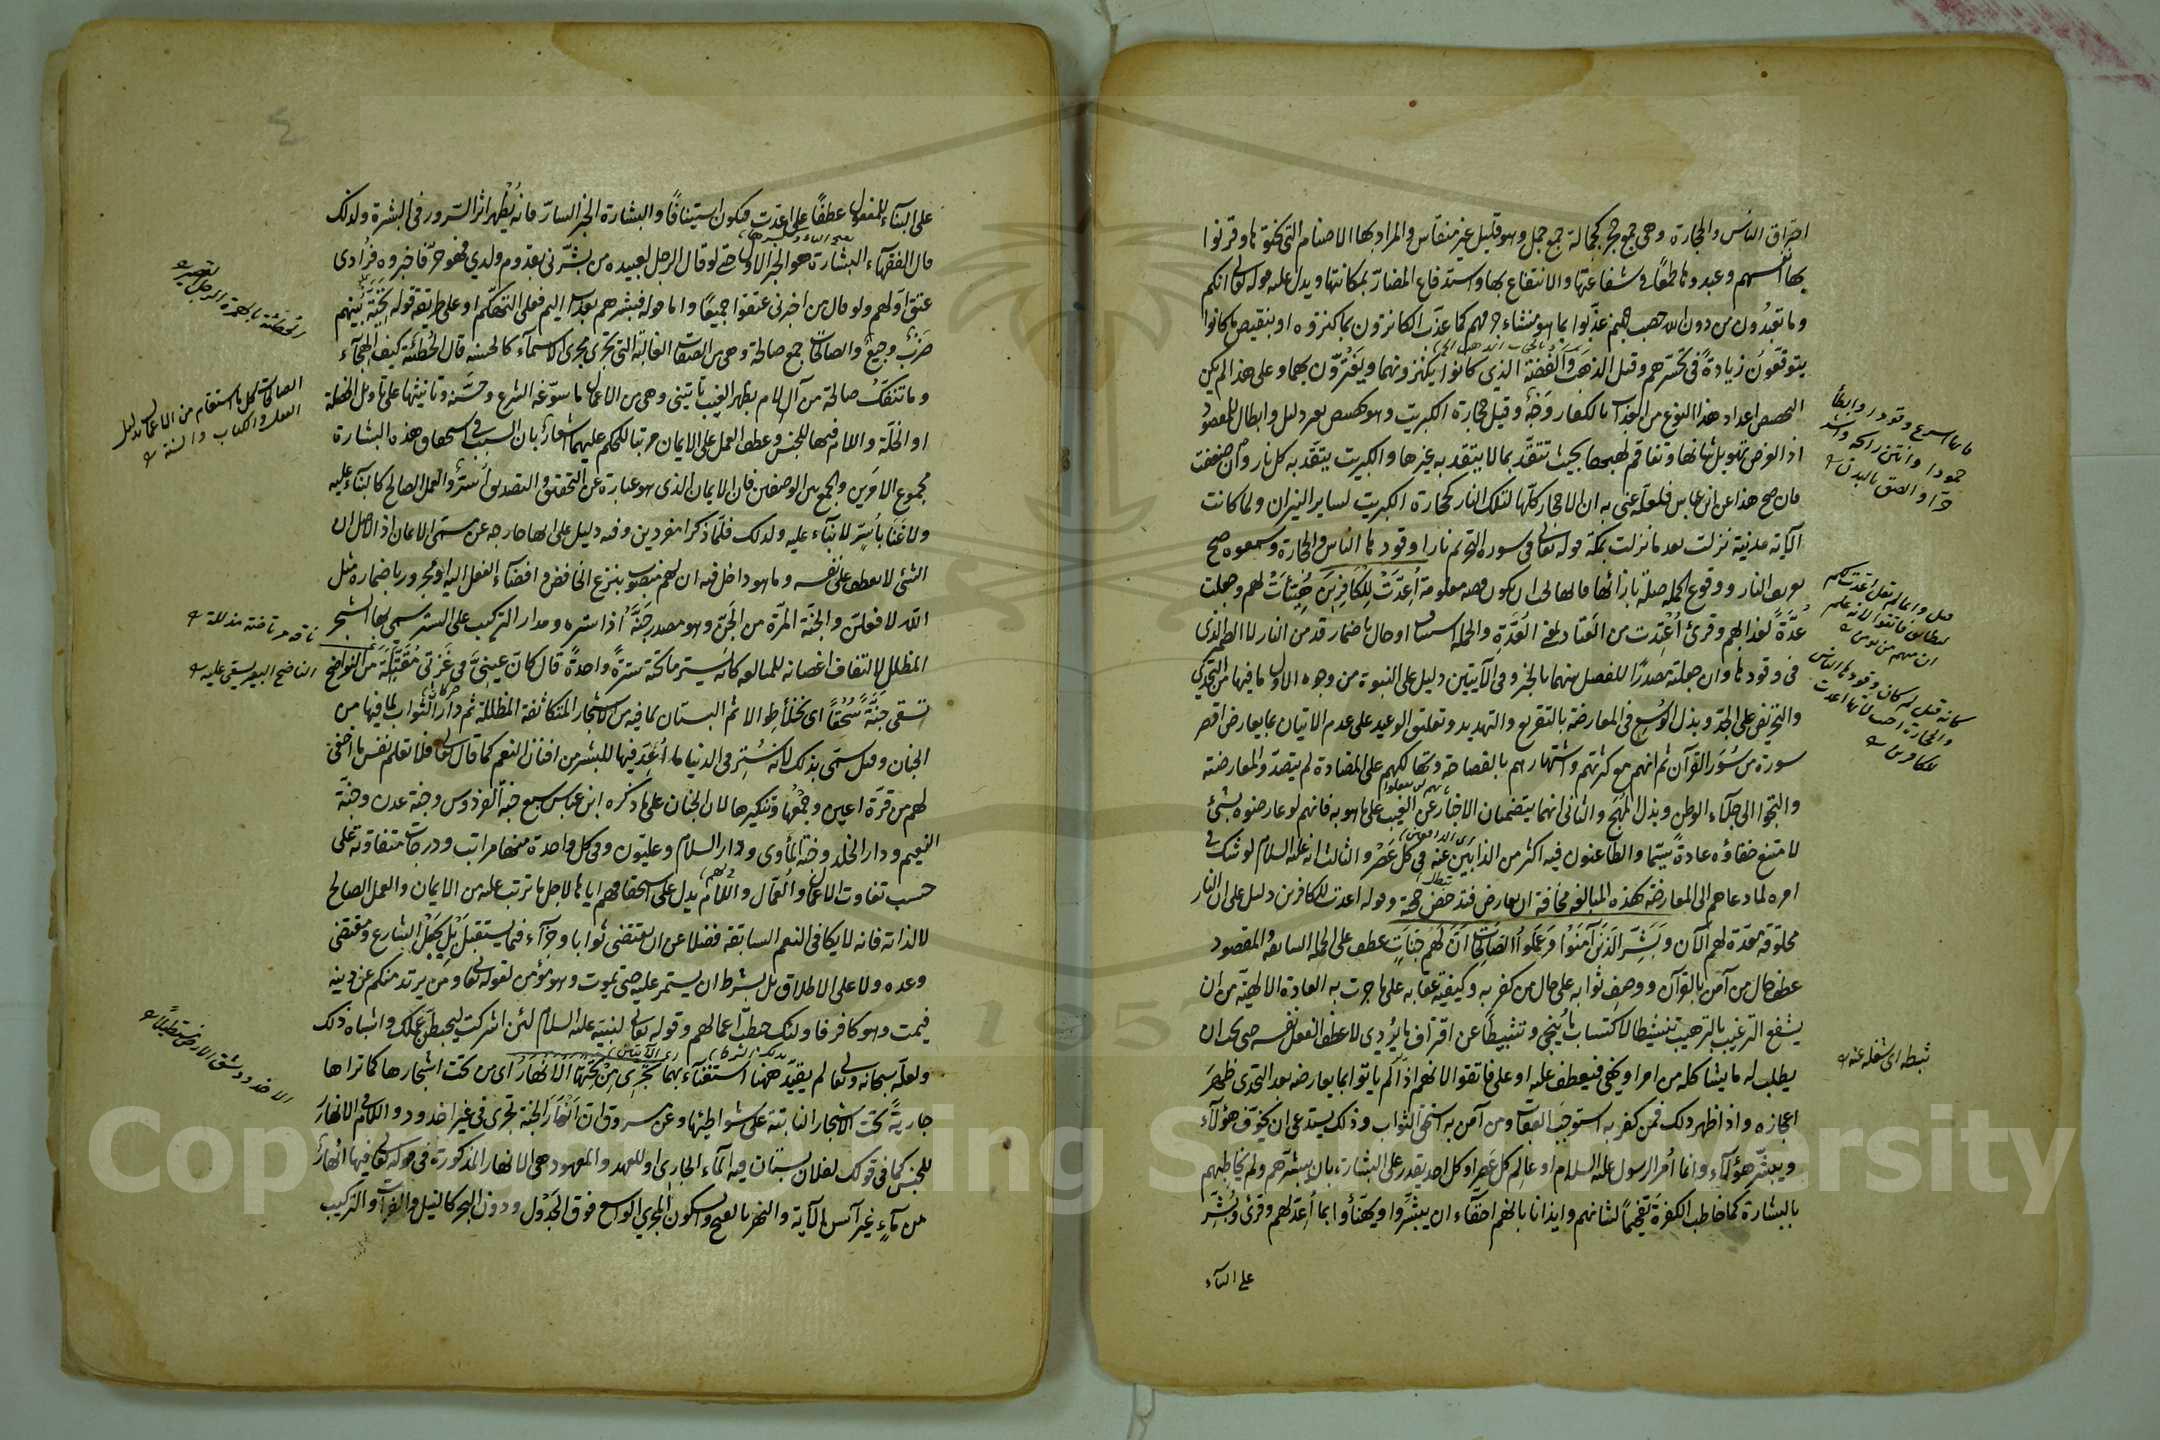 احتراق الناس والحجارة وهي جمع حجر كجمالة جمع جمل وهو قليل غير منقاس والمراد بها الاصنام التي نحتوها وقرنوا
بها انفسهم وعبدوها طمعًا في شفاعتها والانتفاع بها واستدفاع المضار بمكانتها ويدل عليه قوله تعالى انكم
وما تعبدون من دون الله حصب جهنم عذبوا بما هو منشاء جرمهم كما عذب الكانزون بما كنزوه او بنقيض ما كانوا
يتوقعون زيادة في تحسرهم وقيل الذهب والفضة الذي كانوا يكنزونهما ويغترون بهما وعلى هذا لم يكن
لتخصيص اعداد هذا النوع من العذاب بالكفار وجه وقيل حجارة الكبريت وهو تخصيص بغير دليل وابطال للمقصود
اذ الغرض تهويل شانها وتفاقم لهبها بحيث تتقد بما لا يتقد به غيرها والكبريت يتقد به كل نار وان ضعفت
فان صح هذا عن ابن عباس فلعله عنى به ان الاحجار كلها لتلك النار كحجارة الكبريت لساير النيران ولما كانت
الآية مدنية نزلت بعد ما نزلت بمكة قوله تعالى في سورة التحريم نارا وقودها الناس والحجارة وسمعوه صح
تعريف النار ووقوع الجملة صلة بازائها فانها يجب ان تكون قصة معلومة أعدت للكافرين هيئت لهم وجعلت
عدة لعذابهم وقرئ أعتدت من العتاد بمعنى العدة والجملة استيناف او حال باضمار قد من النار لا الضمير الذي
في وقودها وان جعلته مصدرًا للفصل بينهما بالخبر وفي الآيتين دليل على النبوة من وجوه الاول ما فيهما من التحدي
والتحريض على الجد وبذل الوسع في المعارضة بالتقريع والتهديد وتعليق الوعيد على عدم الاتيان بما يعارض اقصر
سورة من سور القرآن ثم انهم مع كثرتهم واشتهارهم بالفصاحة وتهالكهم على المضادة لم يتصدوا لمعارضته
والتجؤا الى جلاء الوطن وبذل المهج والثاني انهما يتضمنان الاخبار عن الغيب على ما هو به فانهم لو عارضوه بشئ
لامتنع خفاؤه عادة سيما والطاعنون فيه اكثر من الذابين عنه في كل عصر والثالث انه عليه السلام لو شك في
امره لما دعاهم الى المعارضة بهذه المبالغة مخافة ان يعارض فتدحض حجته وقوله اعدت للكافرين دليل على ان النار
مخلوقة معدة لهم الآن وبشر الذين آمنوا وعملوا الصالحات ان لهم جنات عطف على الجملة السابقة والمقصود
عطف حال من آمن بالقرآن ووصف ثوابه على حال من كفر به وكيفية عقابه على ما جرت به العادة الالهية من ان
يشفع الترغيب بالترهيب تنشيطا لاكتساب ما ينجي وتثبيطًا عن اقتراف ما يردي لا عطف الفعل نفسه حتى يجب ان
يطلب له ما يشاكله من امر او نهي فيعطف عليه او على فاتقوا لانهم اذا لم ياتوا بما يعارضه بعد التحدي ظهر
اعجازه واذا ظهر ذلك فمن كفر به استوجب العقاب ومن آمن به استحق الثواب وذلك يستدعي ان يخوف هؤلاء
ويبشر هؤلاء وانما أمر الرسول عليه السلام او عالم كل عصر او كل احد يقدر على البشارة بان يبشرهم ولم يخاطبهم
بالبشارة كما خاطب الكفرة تفخيمًا لشانهم وايذانا بانهم احقاء ان يبشروا ويهنأوا بما أعد لهم وقرئ وبشر
على البناء
ثبطه اي شغله عنه
على البناء للمفعول عطفًا على اعدت فيكون استينافًا والبشارة الخبر السار فانه يظهر اثر السرور في البشرة ولذلك
قال الفقهاء البشارة هو الخبر الاول حتى لو قال الرجل لعبيده من بشرني بقدوم ولدي فهو حر فاخبروه فرادى
عتق اولهم ولو قال من اخبرني عتقوا جميعًا واما قوله فبشرهم بعذاب اليم فعلى التهكم او على طريقة قوله تحية بينهم
ضرب وجيع والصالحات جمع صالحة وهي من الصفات الغالبة التي تجري مجرى الاسماء كالحسنة قال الحطيئة كيف الهجاء
وما تنفك صالحة من آل لام بظهر الغيب تاتيني وهي من الاعمال ما سوغه الشرع وحسنه وتانيثها على تاويل الخصلة
او الخلة واللام فيها للجنس وعطف العمل على الايمان مرتبا للحكم عليهما اشعارًا بان السبب في استحقاق هذه البشارة
مجموع الامرين والجمع بين الوصفين فان الايمان الذي هو عبارة عن التحقيق والتصديق أس والعمل الصالح كالبناء عليه
ولا غناء بأس لا بناء عليه ولذلك قلما ذكرا مفردين وفيه دليل على انها خارجة عن مسمى الايمان اذ الاصل ان
الشئ لا يعطف على نفسه وما هو داخل فيه ان لهم منصوب بنزع الخافض وافضاء الفعل اليه او مجرور باضماره مثل
الله لافعلن والجنة المرة من الجن وهو مصدر جنه اذا ستره ومدار التركيب على الستر سمي بها الشجر
المظلل لالتفاف اغصانه للمبالغة كانه يستر ما تحته سترة واحدة قال كان عيني في غربي مقتلة من النواضح
تسقي جنة سحقًا اي نخلا طوالا ثم البستان لما فيه من الاشجار المتكاثفة المظللة ثم دار الثواب لما فيها من
الجنان وقيل سمي بذلك لانه ستر في الدنيا ما أعد فيها للبشر من افنان النعم كما قال تعالى فلا تعلم نفس ما اخفي
لهم من قرة اعين وجمعها وتنكيرها لان الجنان على ما ذكره ابن عباس سبع جنة الفردوس وجنة عدن وجنة
النعيم ودار الخلد وجنة المأوى ودار السلام وعليون وفي كل واحدة منها مراتب ودرجات متفاوتة على
حسب تفاوت الاعمال والعمال واللام يدل على استحقاقهم اياها لاجل ما ترتب عليه من الايمان والعمل الصالح
لا لذاته فانه لا يكافي النعم السابقة فضلا عن ان يقتضي ثوابا وجزاء فيما يستقبل بل بجعل الشارع ومقتضى
وعده ولا على الاطلاق بل بشرط ان يستمر عليه حتى يموت وهو مؤمن لقوله تعالى ومن يرتدد منكم عن دينه
فيمت وهو كافر فاولئك حبطت اعمالهم وقوله تعالى لنبيه عليه السلام لئن اشركت ليحبطن عملك واشباه ذلك
ولعله سبحانه وتعالى لم يقيد ههنا استغناء بهما تجري من تحتها الانهار اي من تحت اشجارها كما تراها
جارية تحت الاشجار النابتة على شواطئها وعن مسروق ان انهار الجنة تجري في غير اخدود واللام في الانهار
للجنس كما في قولك لفلان بستان فيه الماء الجاري او للعهد والمعهود هي الانهار المذكورة في قوله تعالى فيها انهار
من ماء غير آسن الآية والنهر بالفتح والسكون المجرى الواسع فوق الجدول ودون البحر كالنيل والفرات والتركيب
الناضح البعير يستقى عليه